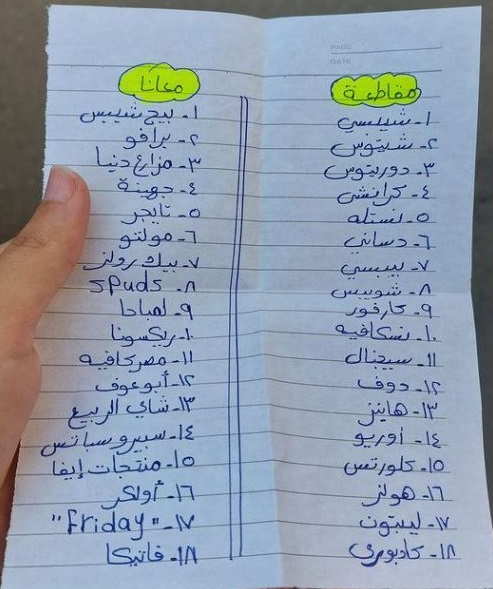 PAGE
DATE
مقاطعة
١- شيبسي
٢- شيتوس
٣- دوريتوس
٤- كرانشي
٥- نستله
٦- دساني
٧- بيبسي
٨- شويبس
٩- كارفور
١٠- نسكافيه
١١- سيجنال
١٢- دوف
١٣- هاينز
١٤- أوريو
١٥- كلورتس
١٦- هولز
١٧- ليبتون
١٨- كادبوري
معانا
١- بيج شيبس
٢- برافو
٣- مزارع دنيا
٤- جهينة
٥- تايجر
٦- مولتو
٧- بيك رولز
٨- spuds
٩- لمبادا
١٠- ريكسونا
١١- مصر كافيه
١٢- أبو عوف
١٣- شاي الربيع
١٤- سبيرو سباتس
١٥- منتجات إيفا
١٦- أولكر
١٧- "Friday"
١٨- فاتيكا